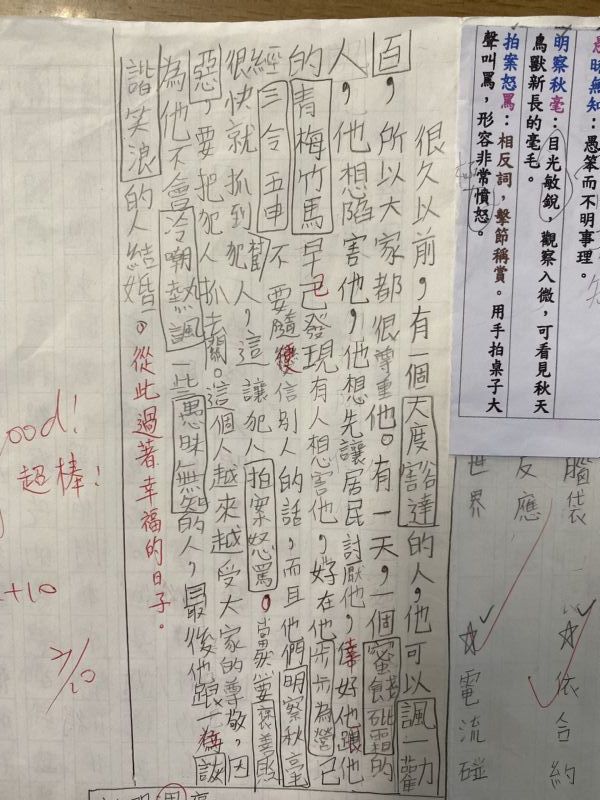 愚昧無知：愚笨而不明事理。
明察秋毫：目光敏銳，觀察入微，可看見秋天
鳥獸新長的毫毛。
拍案怒罵：相反詞，擊節稱賞。用手拍桌子大
聲叫罵，形容非常憤怒。
腦袋
☆依合約
反應
世界
☆電流碰
很久以前，有一個大度豁達的人，他可以諷一勸
百，所以大家都很尊重他。有一天，一個蜜餞砒霜的
人，他想陷害他，他想先讓居民討厭他，幸好他跟他
的青梅竹馬早已發現有人想害他，好在他步步為營已
經三令五申不要隨便信別人的話，而且他們明察秋毫
很快就抓到犯人，這讓犯人拍案怒罵。當然要褒善貶
惡，要把犯人抓去關。這個人越來越受大家的尊敬，因
為他不會冷嘲熱諷一些愚昧無知的人，最後他跟一為詼
諧笑浪的人結婚。從此過著幸福的日子。
ood!
超棒!
+10